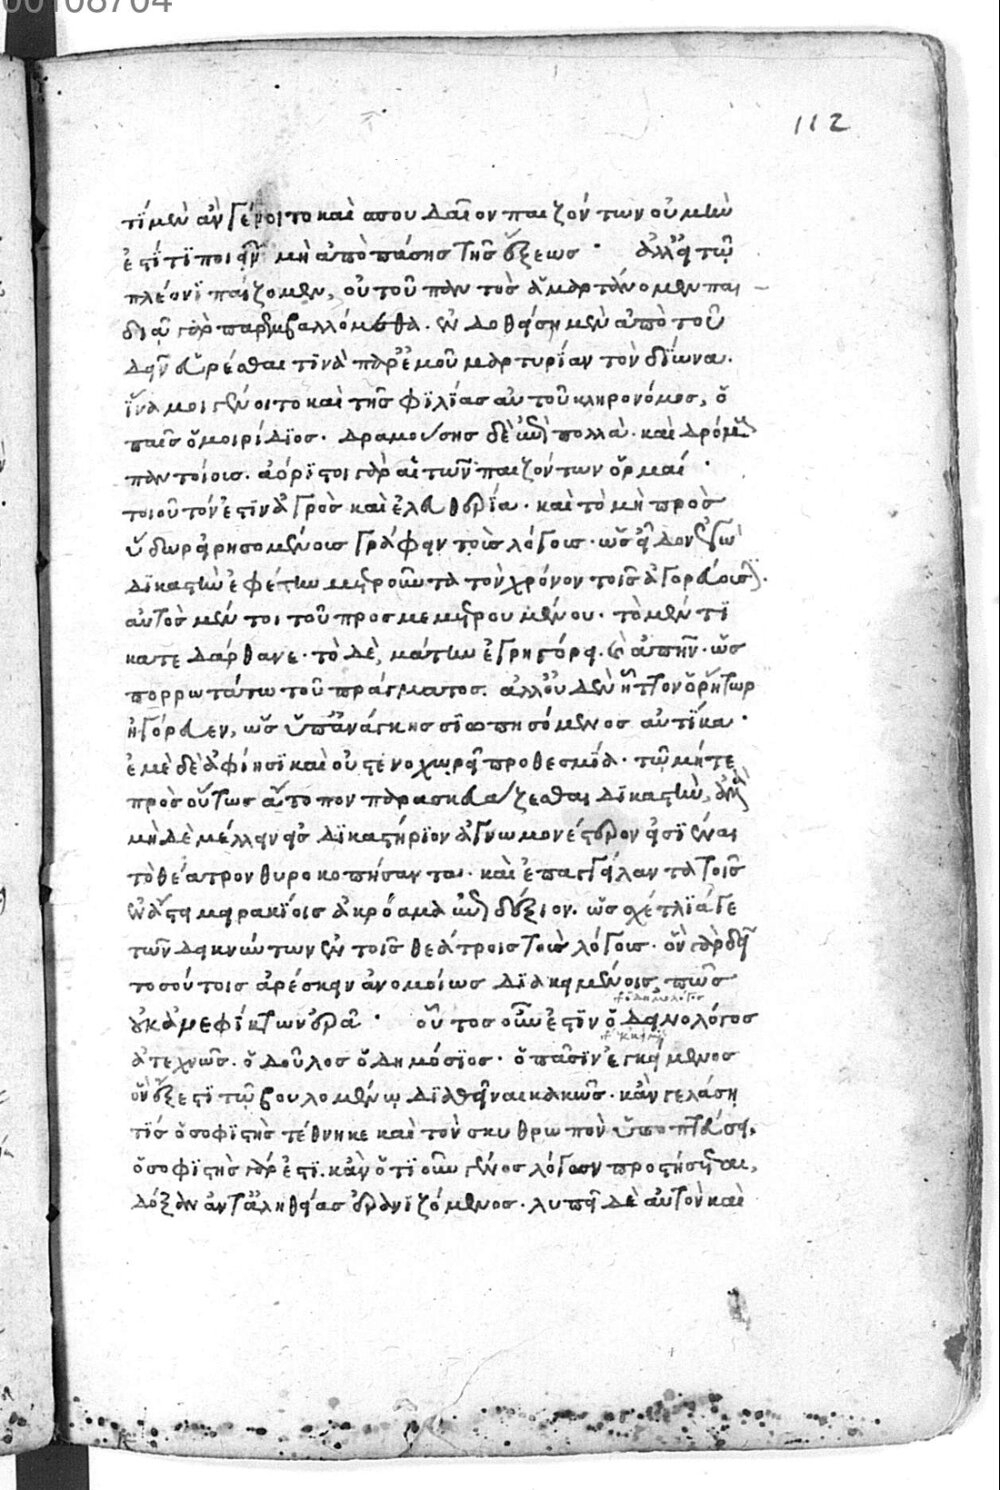 00108704
112
τί μὲν ἂν γένοιτο καὶ σου δαῖον παιζόντων οὐμὲν
ἐστί τι ποιεῖν μὴ ἀπὸ πάσης τῆς ἕξεως · ἀλλ' εἰ τῷ
πλέονι παίζομεν, οὐ τοῦ παντὸς ἁμαρτάνομεν παι-
διᾷ γὰρ παρεμβαλλόμεθα. ἐνδοθείση μὲν ἀπὸ τοῦ
δεῖν εὑρέσθαι τινὰ παρ' ἐμοῦ μαρτυρίαν τὸν δίωνα.
ἵνα μοι γένοιτο καὶ τῆς φιλίας αὐτοῦ κληρονόμος, ὁ
παῖς ὁ μοιρίδιος. δραμούσης δὲ ἐπὶ πολλὰ. καὶ δρόμον
παντοίοις. ἀόριστοι γὰρ αἱ τῶν παιζόντων ὁρμαί ·
τοιοῦτόν ἐστιν ἀγρὸς καὶ ἐλευθερία. καὶ τὸ μὴ πρὸς
ὕδωρ εἰρησομένοις γράφειν τοῖς λόγοις. ὡς εἶδον ἐγὼ
δικαστὴν ἐφέτην μετροῦντα τὸν χρόνον τοῖς ἀγορεύουσι.
αὐτὸς μέν τοι τοῦ προσμεμετρουμένου. τὸ μέν τι
κατεδάρθανε. τὸ δὲ, μάτην ἐγρηγόρει. καὶ ἀπῆν. ὡς
πορρωτάτω τοῦ πράγματος. ἀλλ' οὐδὲν ἧττον ὁ ῥήτωρ
ἠγόρευεν, ὡς ὑπ' ἀνάγκης σιωπησόμενος αὐτίκα ·
ἐμὲ δὲ ἀφίησι καὶ οὐ στενοχωρεῖ προθεσμία. τῷ μήτε
πρὸς οὕτως ἄτοπον παρασκευάζεσθαι δικαστὴν,
μὴ δὲ μέλλειν εἰς δικαστήριον ἀγνωμονέστερον εἰσιέναι
τὸ θέατρον θυροκοπήσαντα. καὶ ἐπαγγείλαντα τοῖς
ἐν ἄστει μειρακίοις ἀκρόαμα ἐπιδέξιον. ὡς σχέτλιά γε
τῶν δεικνύντων ἐν τοῖς θεάτροις τοὺς λόγους. ὃν γὰρ δεῖ
τοσούτοις ἀρέσκειν ἀνομοίως διακειμένοις, πῶς
οὐκ ἀνεφίκτων ἐρᾷ · οὗτος οὖν ἐστιν ὁ δεινολόγος
ἀτεχνῶς. ὁ δοῦλος ὁ δημόσιος. ὁ πᾶσιν ἐγκείμενος
ὃν ἔξεστι τῷ βουλομένῳ διαθεῖναι κακῶς. κἂν γελάσῃ
τίς ὁ σοφιστὴς τέθνηκε καὶ τὸν σκυθρωπὸν ὑποπτεύσει,
ὁ σοφιστὴς γάρ ἐστι. κἂν ὅτι οὖν γένος λόγων προστήσηται,
δόξαν ἀντ' ἀληθείας ἐρανιζόμενος. λυπεῖ δὲ αὐτὸν καὶ